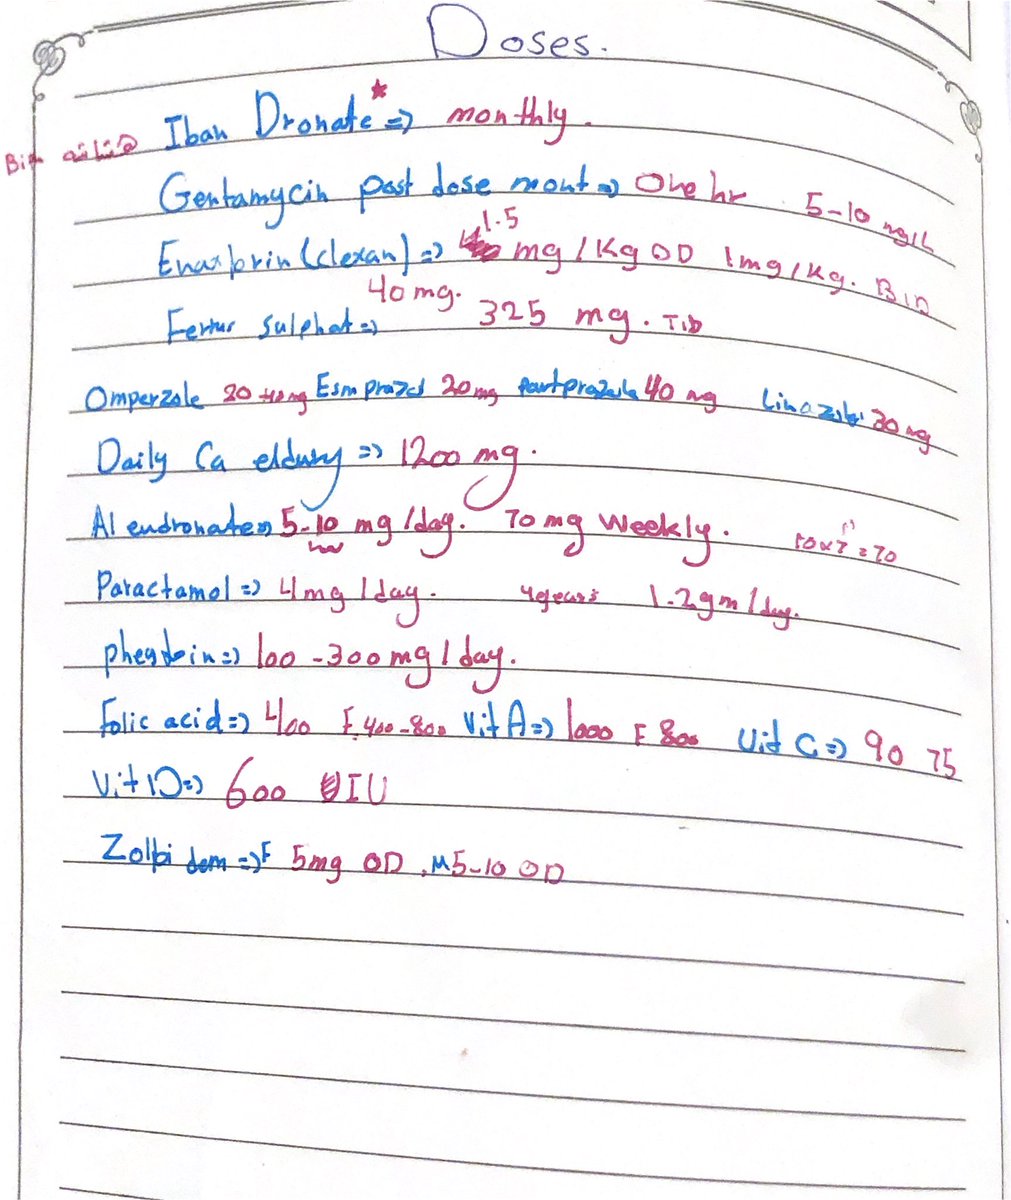 Doses.
Iban Dronate* => monthly.
Gentamycin post dose mont => One hr 5-10 mg/L
1.5
Enaxbrin (clexan) => mg/Kg OD 1mg/Kg. BID
40 mg.
Ferrur sulphat => 325 mg. TID
Omperzole 20 40mg Esmprazol 20mg pantprazole 40 mg 30 mg
Daily Ca elduny => 1200 mg.
Alendronate => 5-10 mg/day. 70 mg Weekly. 10x7=70
Paractamol => 4mg/day. 4years 1.2gm/day.
=> 100-300mg/day.
Folic acid => 400 F.400-800 Vit A => 1000 F 800 Vit C => 90 75
Vit D => 600 IU
Zolbi dem => F 5mg OD, M5-10 OD